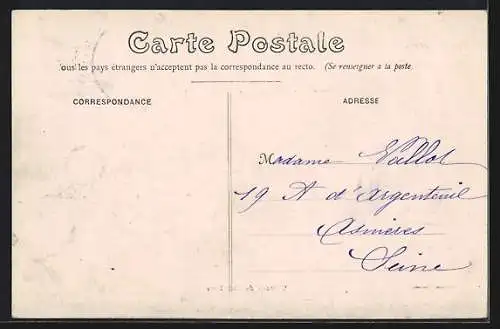 Carte Postale
ous les pays étrangers n'acceptent pas la correspondance au recto. (Se renseigner à la poste
CORRESPONDANCE
ADRESSE
Madame Vallot
19 R d'Argenteuil
Asnières
Seine